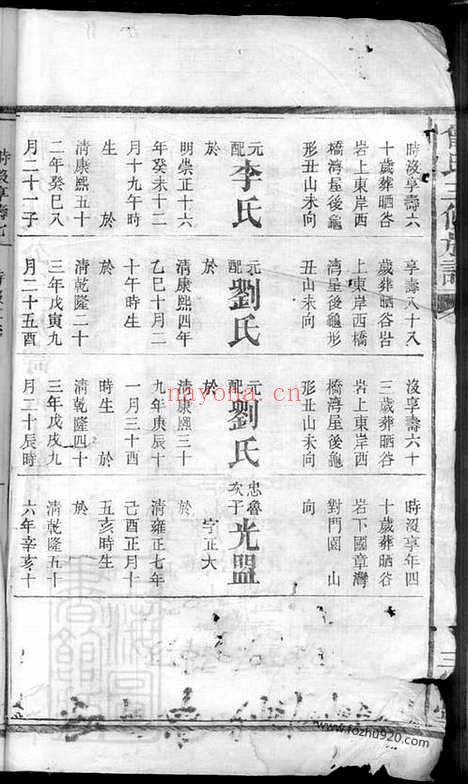 氏三修族譜
三
時沒享壽六
十歲葬晒谷
岩上東岸西
橋灣屋後龜
形丑山未向
元配李氏
於
明崇正十六
年癸未十二
月十九午時
生 於
清康熙五十
二年癸巳八
月二十一子
享壽八十八
歲葬晒谷岩
上東岸西橋
灣屋後龜形
丑山未向
元配劉氏
於
清康熙四年
乙巳十月二
十午時生
於
清乾隆二十
三年戊寅九
月二十五酉
沒享壽六十
三歲葬晒谷
岩上東岸西
橋灣屋後龜
形丑山未向
元配劉氏
於
清康熙三十
九年庚辰十
一月三十酉
時生 於
清乾隆四十
三年戊戌九
月二十辰時
時沒享年四
十歲葬晒谷
岩下國章灣
對門園山
向
忠魯次子光盟
字正大
於
清雍正七年
己酉正月十
五亥時生
於
清乾隆五十
六年辛亥十
時沒享壽七
nayona.cn
www.fozhu920.com